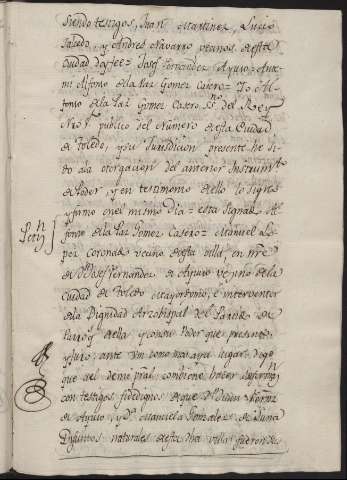 siendo testigos, Juan Martinez, Lucio
Salcedo, y Andres Navarro vezinos de esta
Ciudad doy fee = Josef Fernandez Ayuso = Ante
mi Alfonso de la Paz Gomez Casero = Yo Al-
fonso de la Paz Gomez Casero SSno del Rey
Nro Sr publico del Numero de esta Ciudad
de Toledo, y su Jurisdicion presente he si
do a la otorgacion del anterior Instrumto
de Poder, y en testimonio de ello lo signo
y firmo en el mismo Dia = esta signado Al
fonso de la Paz Gomez Casero = Manuel Lo
Peticn
pez Coronado vecino de esta villa, en nre
de Dn Josef Fernandez de Ayuso vezino de la
Ciudad de Toledo Mayordomo, e interventor
de la Dignidad Arzobispal del Partido de
ella y como Poder que presento,
y juro; ante Vm como mas aya lugar Digo
que a el de mi pral combiene haber informn
con testigos fidedignos de que Dn
de Ayuso, y Da Manuela Gonzalez de Luna
Difuntos naturales de esta dha villa fueron